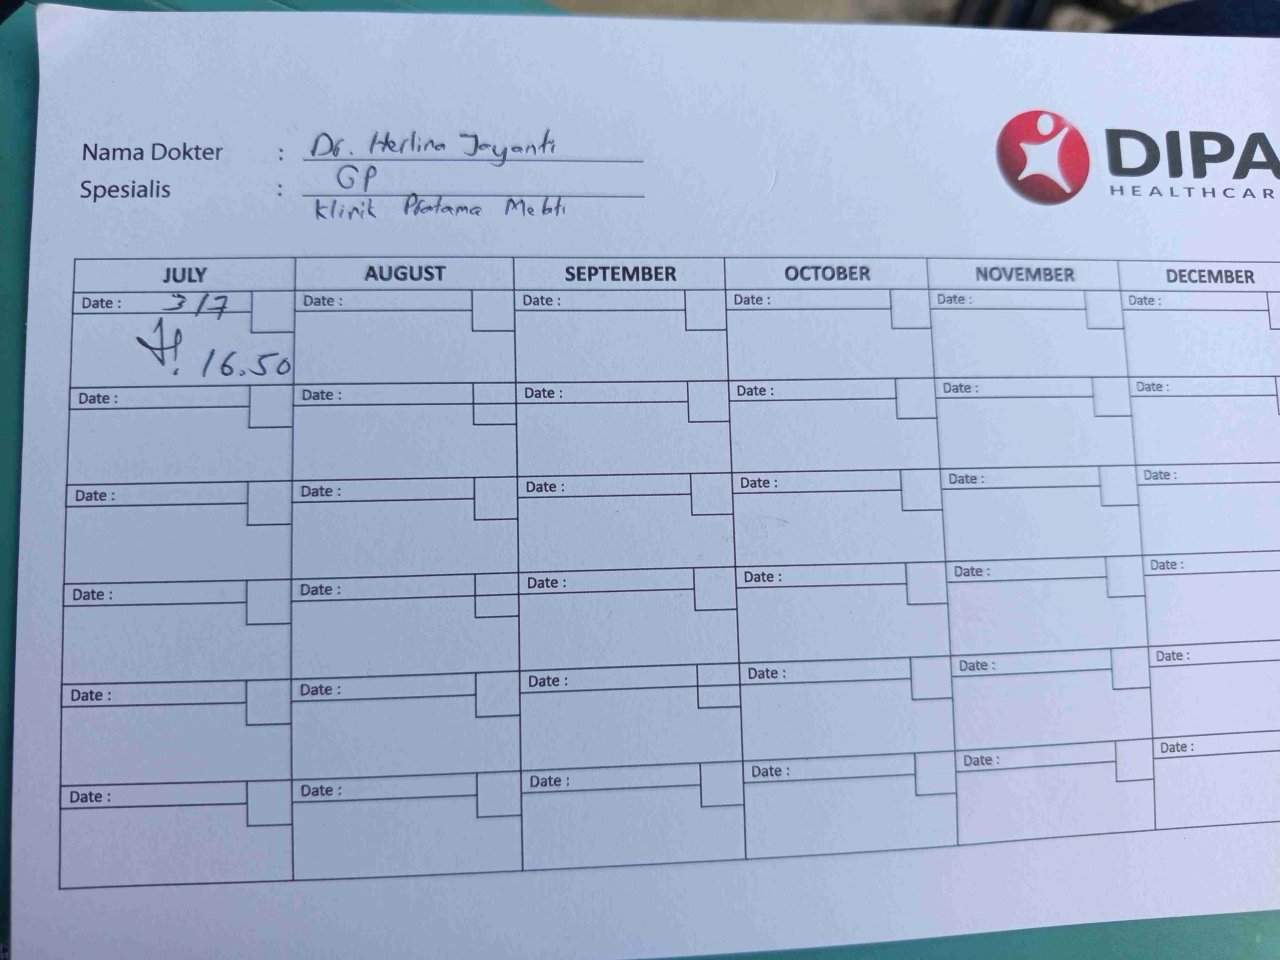 Nama Dokter : Dr. Herlina Jayanti
Spesialis : GP
Klinik Pratama Mebti
DIPA
HEALTHCAR
JULY AUGUST SEPTEMBER OCTOBER NOVEMBER DECEMBER
Date : 3/7 Date : Date : Date : Date : Date :
16.50
Date : Date : Date : Date : Date : Date :
Date : Date : Date : Date : Date : Date :
Date : Date : Date : Date : Date : Date :
Date : Date : Date : Date : Date : Date :
Date : Date : Date : Date : Date : Date :